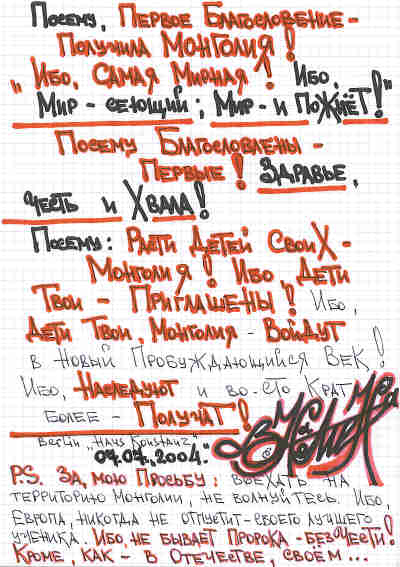 Посему, Первое Благословение -
Получила Монголия!
"Ибо, Самая Мирная! Ибо,
Мир - сеющий; Мир - и Пожнёт!"
Посему Благословлены -
Первые! Здравье,
Честь и Хвала!
Посему: Расти Детей Своих -
Монголия! Ибо, Дети
Твои - Приглашены! Ибо,
Дети Твои, Монголия - Войдут
в Новый Пробуждающийся Век!
Ибо, Наследуют и во-сто Крат
более - Получат!
Berlin "Haus Konstanz"
04.04.,2004."
P.S. За, мою Просьбу: въехать на
территорию Монголии, не волнуйтесь. Ибо,
Европа, никогда не отпустит - своего лучшего
ученика. Ибо, не бывает Пророка - без Чести!
Кроме, как - в Отечестве, своём...